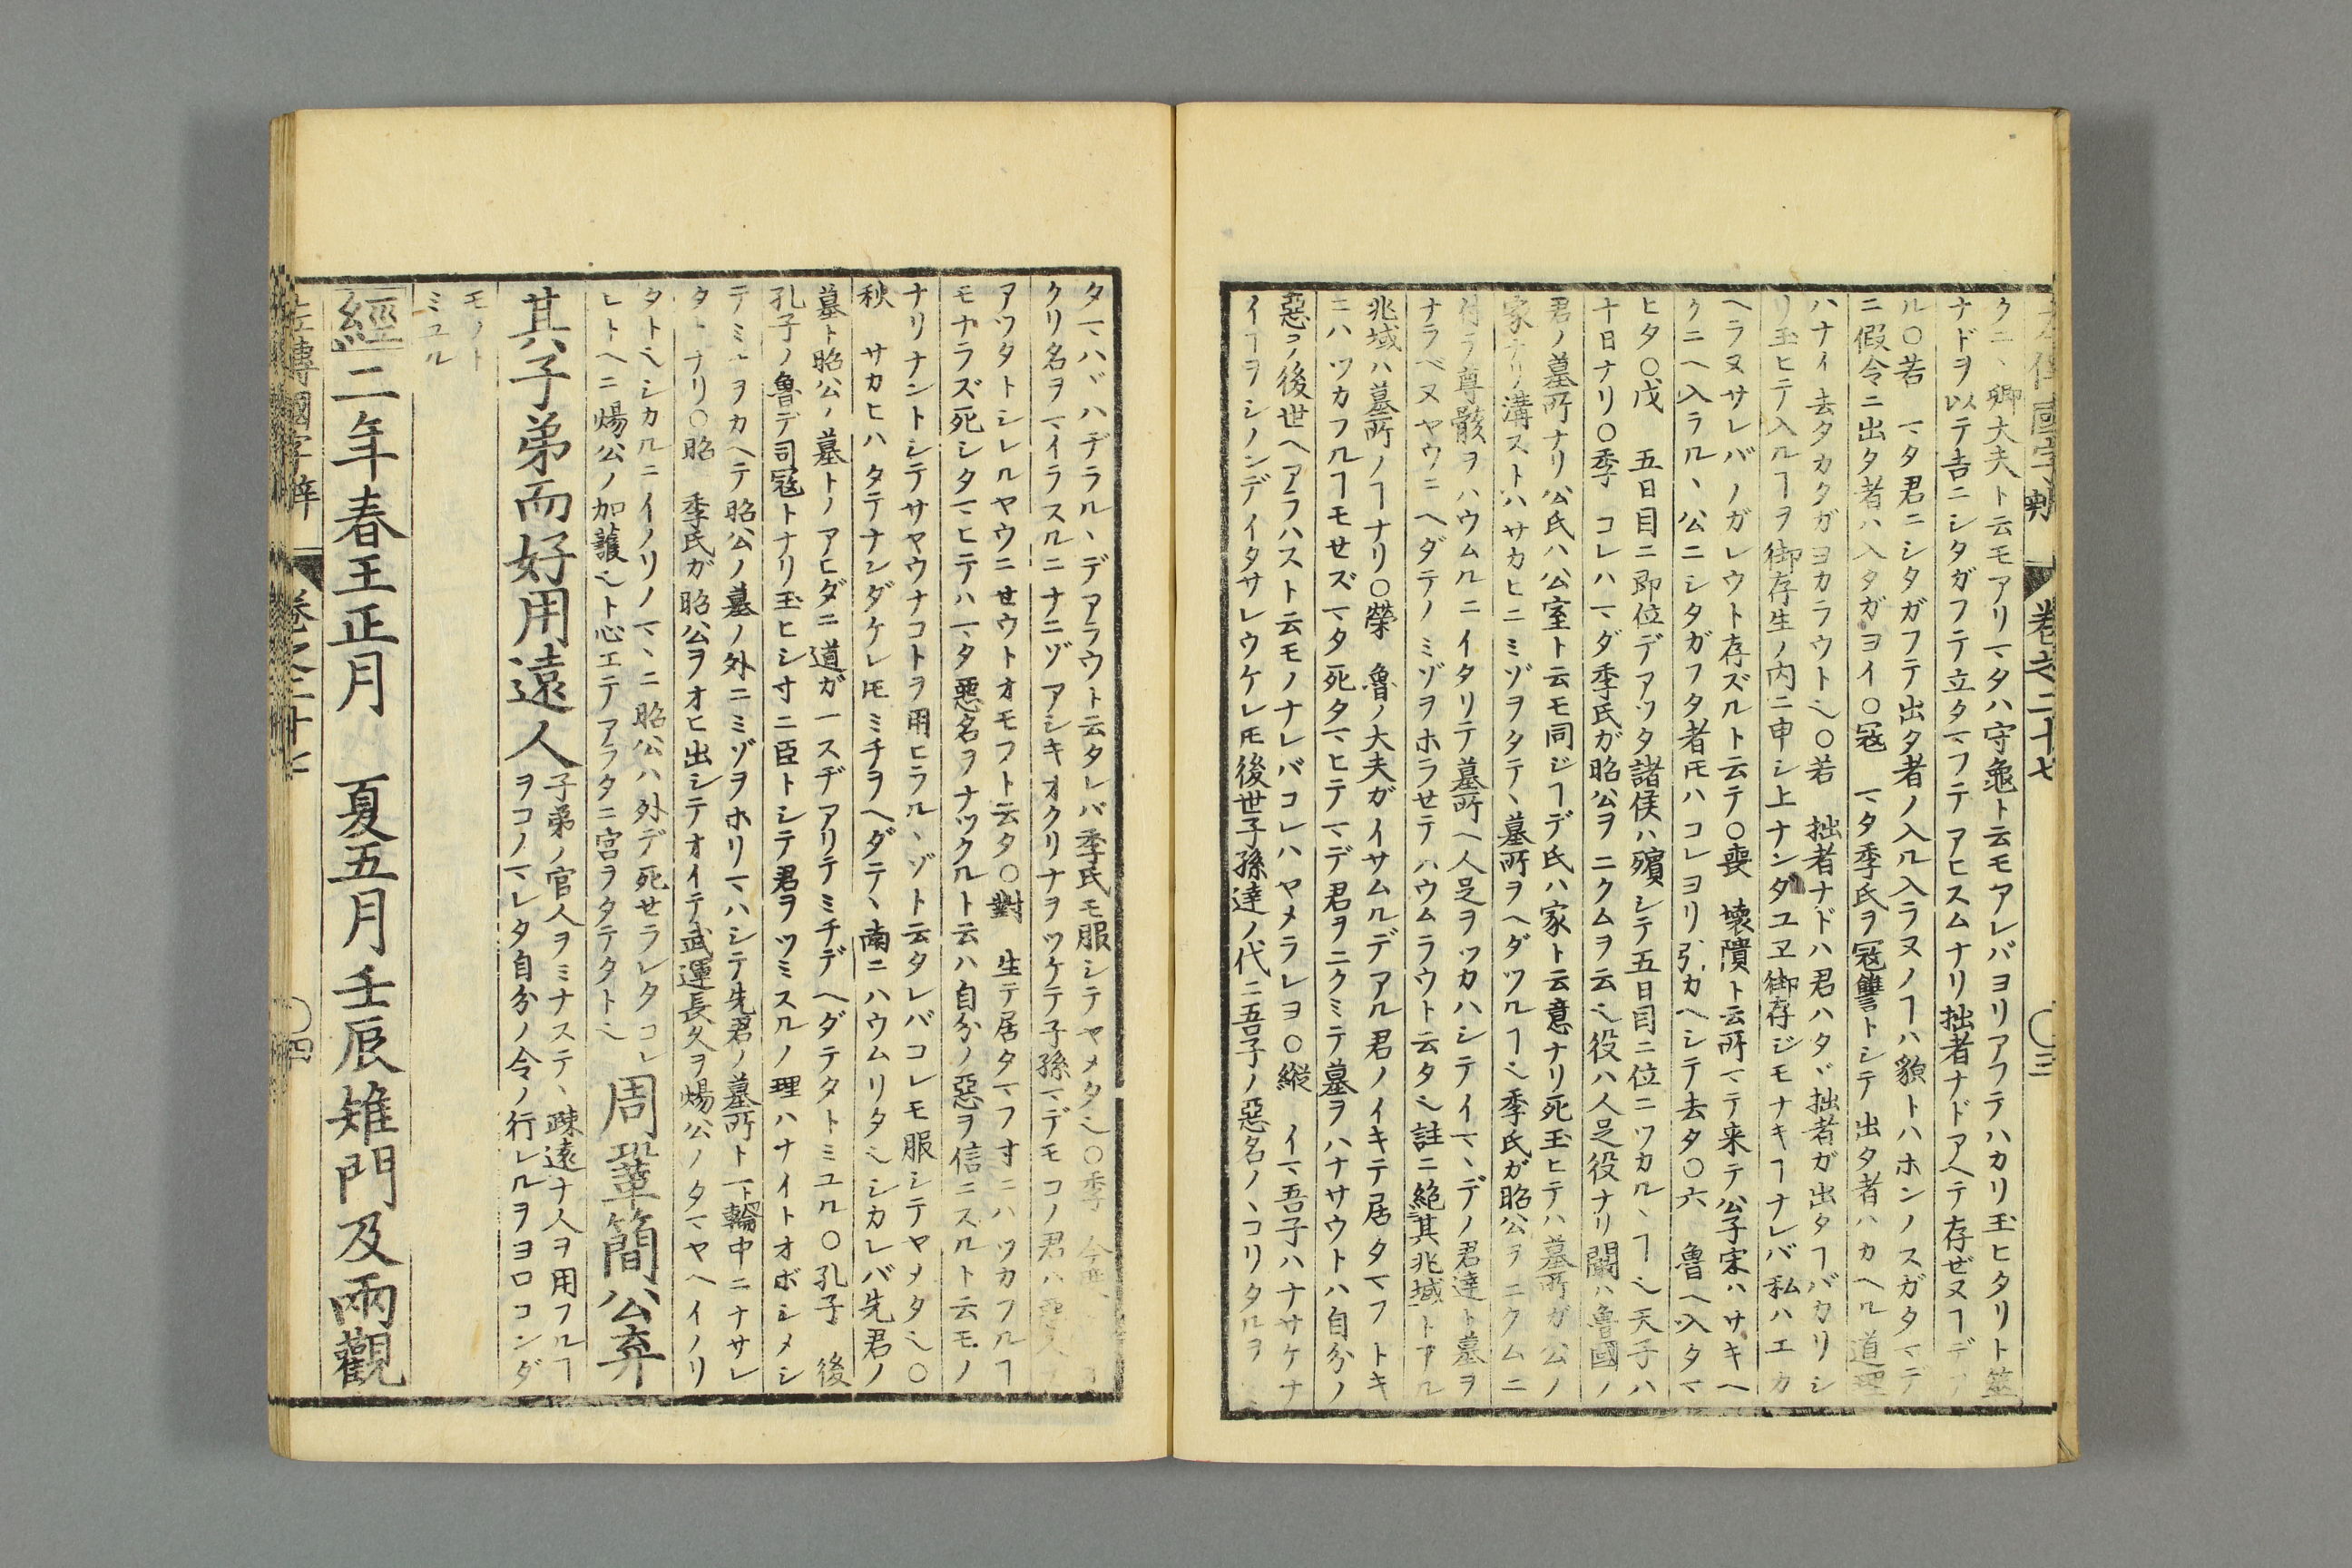 左傳國字辨 卷之二十七 〇三
クニヽ卿大夫ト云モアリマタハ守龜ト云モアレバヨリアフテハカリ玉ヒタリト筮
ナドヲ以テ吉ニシタガフテ立タマフテアヒスムナリ拙者ナドアヘテ存ぜヌヿデア
ル〇若 マタ君ニシタガフテ出タ者ノ入ル入ラヌノヿハ貌トハホンノスガタマデ
ニ假令ニ出タ者ハ入タガヨイ〇冦 マタ季氏ヲ冦讐トシテ出タ者ハカヘル道理
ハナイ去タカタガヨカラウト也〇若 拙者ナドハ君ハタヾ拙者ガ出タヿバカリシ
リ玉ヒテ入ルヿヲ御存生ノ内ニ申シ上ナンダユヱ御存ジモナキヿナレバ私ハエカ
ヘラヌサレバノガレウト存ズルト云テ〇喪 壊隤ト云所マテ来テ公子宋ハサキヘ
クニヘ入ラルヽ公ニシタガフタ者𪜈ハコレヨリ引カヘシテ去タ〇六 魯ヘ入タマ
ヒタ〇戊 五日目ニ即位デアツタ諸侯ハ殯シテ五日目ニ位ニツカルヽヿ也天子ハ
十日ナリ〇季 コレハマダ季氏ガ昭公ヲニクムヲ云也役ハ人足役ナリ闞ハ魯國ノ
君ノ墓所ナリ公氏ハ公室ト云モ同ジヿデ氏ハ家ト云意ナリ死玉ヒテハ墓所ガ公ノ
家ナリ溝ストハサカヒニミゾヲタテヽ墓所ヲヘダツルヿ也季氏ガ昭公ヲニクムニ
付ラ尊骸ヲハウムルニイタリテ墓所ヘ人足ヲツカハシテイマヽデノ君達ト墓ヲ
ナラベヌヤウニヘダテノミゾヲホラせテハウムラウト云タ也註ニ絶其兆域トアル
兆域ハ墓所ノヿナリ〇榮 魯ノ大夫ガイサムルデアル君ノイキテ居タマフトキ
ニハツカフルヿモせズマタ死タマヒテマデ君ヲニクミテ墓ヲハナサウトハ自分ノ
惡ヲ後世ヘアラハスト云モノナレバコレハヤメラレヨ〇縱 イマ吾子ハナサケナ
イヿヲシノンデイタサレウケレ𪜈後世子孫達ノ代ニ吾子ノ惡名ノヽコリタルヲ
タマハヾハヂラルヽデアラウト云タレバ季氏モ服シテヤメタ也〇季
クリ名ヲマイラスルニナニゾアシキオクリナヲツケテ子孫マデモコノ君ハ
アツタトシレルヤウニせウトオモフト云タ〇對 生テ居タマフ寸ニハツカフルヿ
モナラズ死シタマヒテハマタ惡名ヲナツクルト云ハ自分ノ惡ヲ信ニスルト云モノ
ナリナントシテサヤウナコトヲ用ヒラルヽゾト云タレバコレモ服シテヤメタ也〇
秋 サカヒハタテナンダケレ𪜈ミチヲヘダテヽ南ニハウムリタ也シカレバ先君ノ
墓ト昭公ノ墓トノアヒダニ道ガ一スヂアリテミチデヘダテタトミユル〇孔子 後
孔子ノ魯デ司冦トナリ玉ヒシ寸ニ臣トシテ君ヲツミスルノ理ハナイトオボシメシ
テミ ヲカヘテ昭公ノ墓ノ外ニミゾヲホリマハシテ先君ノ墓所ト一ト輪中ニナサレ
タ ナリ〇昭 季氏ガ昭公ヲオヒ出シテオイテ武運長久ヲ煬公ノタマヤヘイノリ
タト也シカルニイノリノマヽニ昭公ハ外デ死せラレタコレ
レトヘニ煬公ノ加護也ト心エテアラタニ宮ヲタテタト也 周鞏簡公弃
其子弟而好用遠人 子弟ノ官人ヲミナステヽ疎遠ナ人ヲ用フルヿ
ヲコノマレタ自分ノ令ノ行レルヲヨロコンダ
モノト
ミユル
經二年春王正月 夏五月壬辰雉門及兩觀
左傳國字辨 卷之二十七 〇四